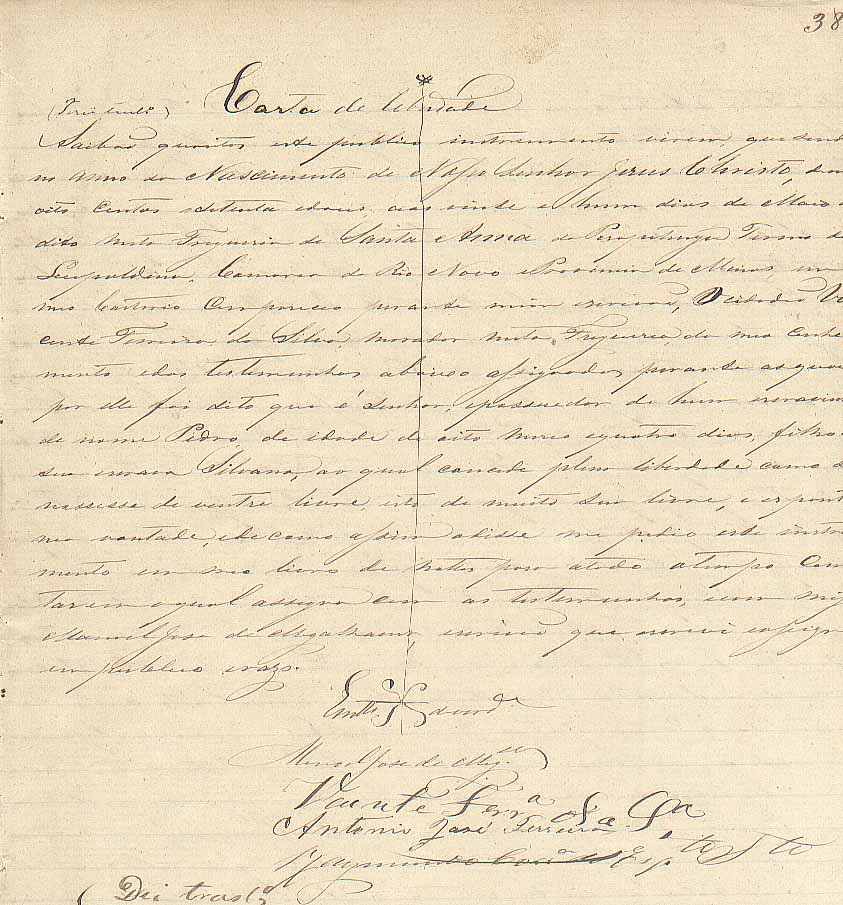 38
Carta de liberdade
Saibão quantos este publico instrumento virem, que send
no Anno do Nascimento de Nosso Senhor Jesus Christo, de mil
oito centos setenta edous, aos vinte e hum dias de Maio d
dito nesta Freguesia de Santa Anna do Pirapetinga Termo da
Leopoldina, Comarca do Rio Novo e Provincia de Minas, em
meo Cartorio Compareceo perante mim escrivão, O cidadão Vi
cente Ferreira da Silva, morador nesta Freguesia, do meo conhe
cimento edas testemunhas abaixo assignadas, perante as quaes
por elle foi dito que é Senhor, epossuidor de hum escravinho
de nome Pedro, de idade de oito meses equatro dias, filho
sua escrava Silvana, ao qual concede plena liberdade como se
nassesse de ventre livre, isto de muito sua livre, e espont
nea vontade, ede como assim odisse me pedio este instru
mento em meo livro de nottas para atodo atempo Cons
tar em o qual assigna com as testemunhas, com mig
Manoel José de Magalhaens, escrivão que escrevi eassign
em publico eraso.
Em tº da verdº
Manoel José de Mag.es
Vicente Ferrª da Sª
Antonio José Ferreira
Raymundo